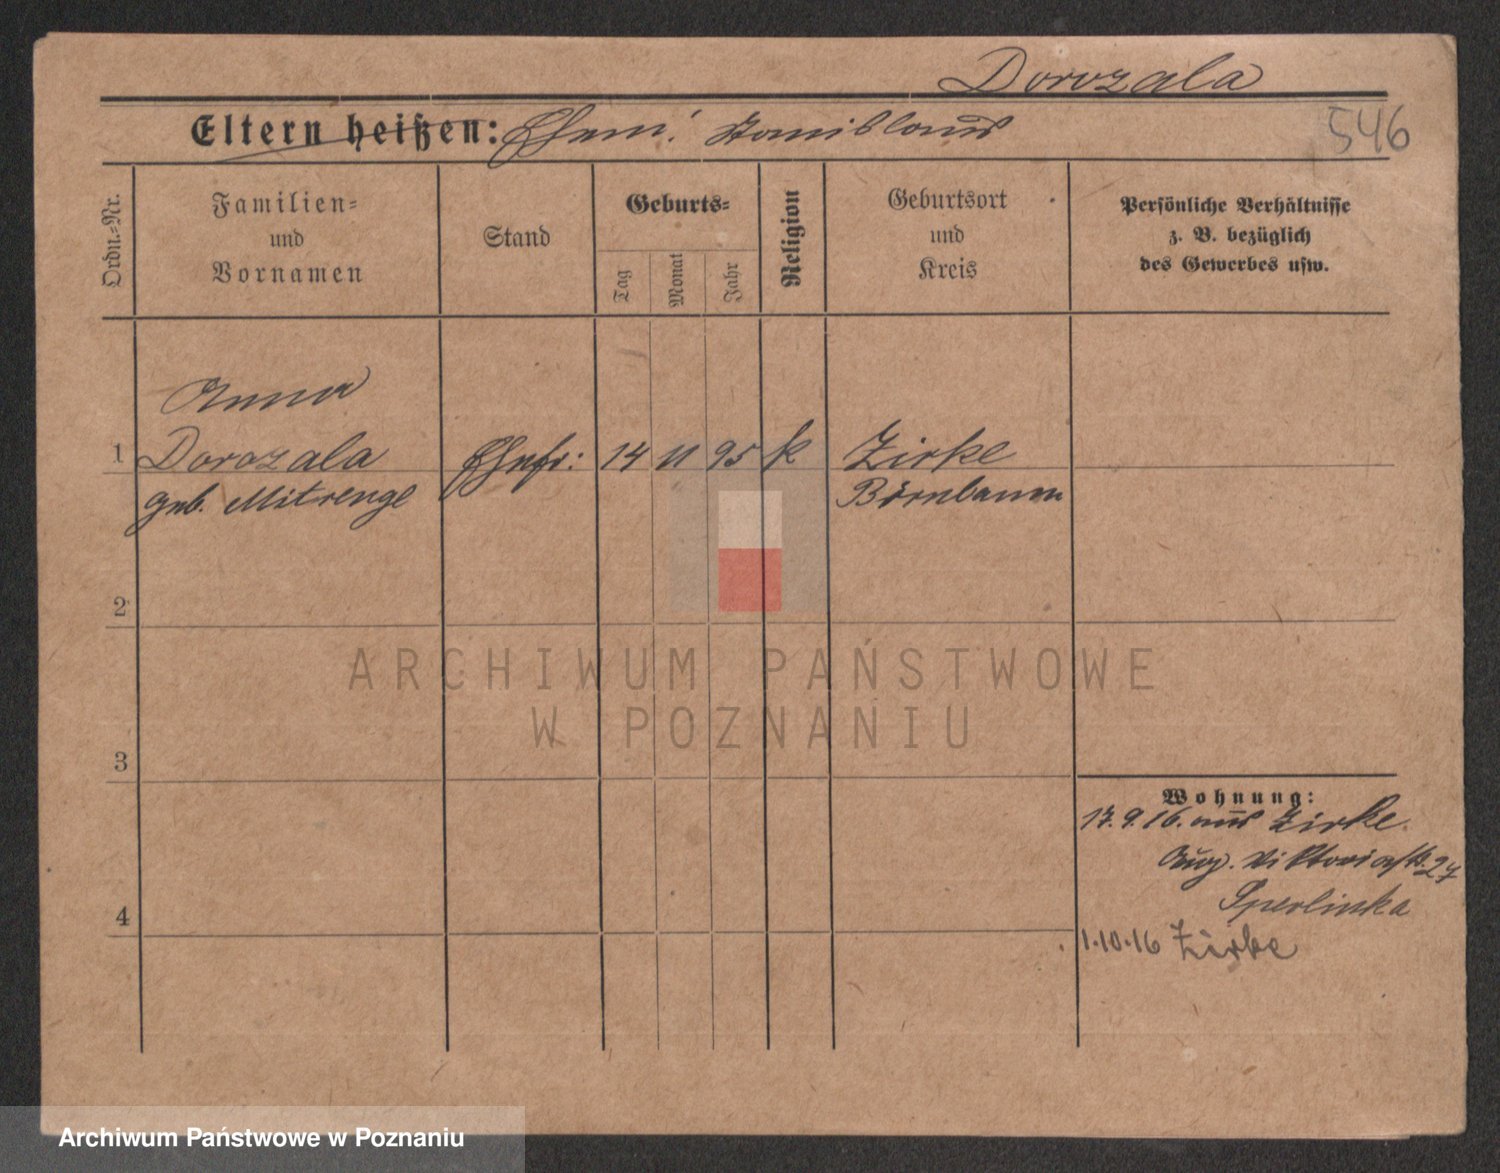 Dorozala
Eltern heißen: Ehem: Stanislaus
546
Ordn.-Nr.
Familien-
und
Vornamen
Stand
Geburts-
Tag
Monat
Jahr
Religion
Geburtsort
und
Kreis
Persönliche Verhältnisse
z. B. bezüglich
des Gewerbes usw.
Anna
1 Dorozala Ehefr: 14 11 95 k Zirke
geb. Mitrenge Birnbaum
2
ARCHIWUM PAŃSTWOWE
W POZNANIU
3
Wohnung:
17.9.16. aus Zirke.
Aug. Viktoriastr. 27
Sperlinka
4
1.10.16 Zirke
Archiwum Państwowe w Poznaniu